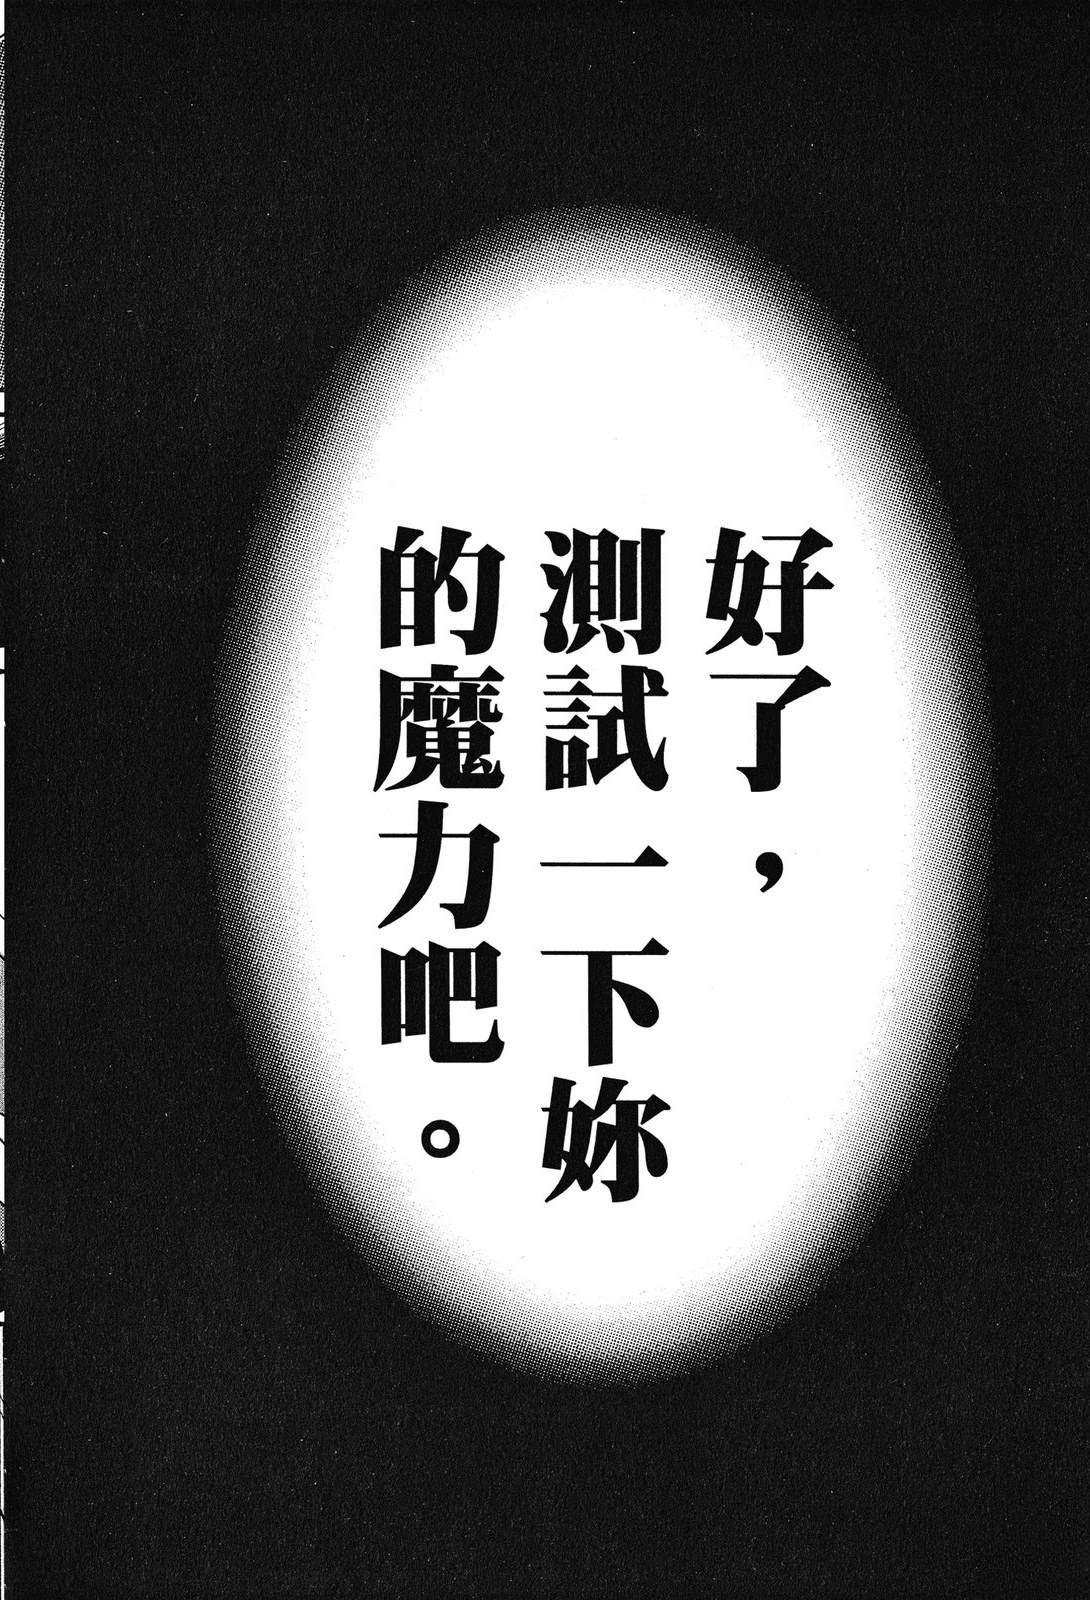 好了，
測試一下妳
的魔力吧。